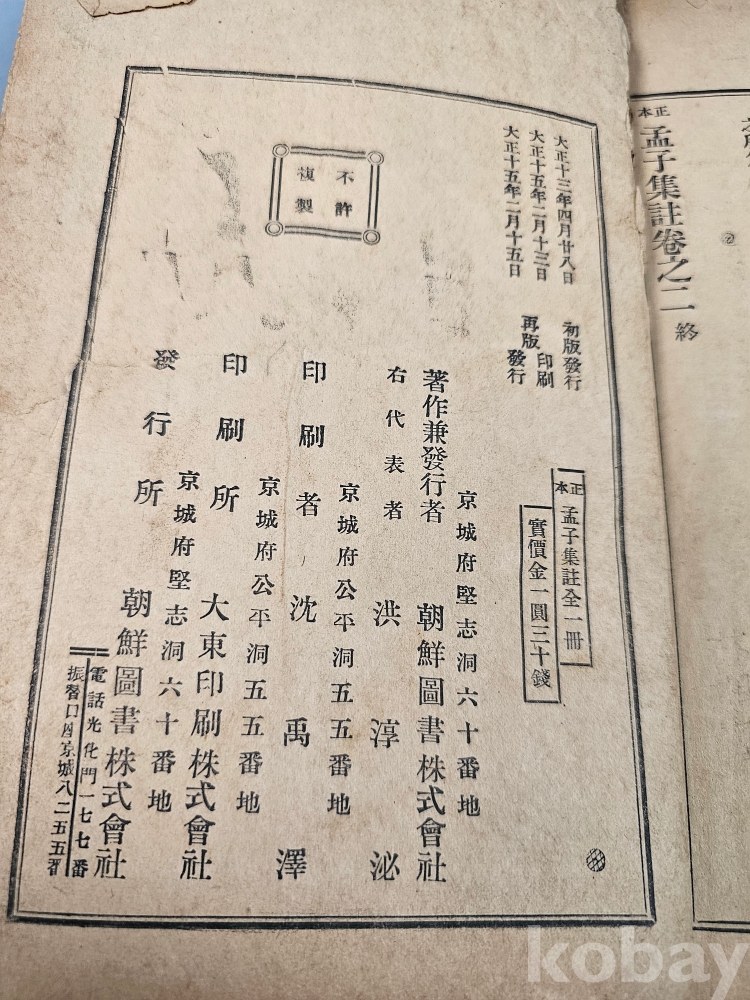 正本 孟子集註卷之二 終
大正十三年四月廿八日 初版發行
大正十五年二月十三日 再版印刷
大正十五年二月十五日 再版發行
不許
複製
正本 孟子集註全一冊
實價金一圓三十錢
京城府堅志洞六十番地
著作兼發行者 朝鮮圖書株式會社
右代表者 洪淳泌
京城府公平洞五五番地
印刷者 沈禹澤
京城府公平洞五五番地
印刷所 大東印刷株式會社
京城府堅志洞六十番地
發行所 朝鮮圖書株式會社
電話光化門一七七番
振替口座京城八二五五番
kobay